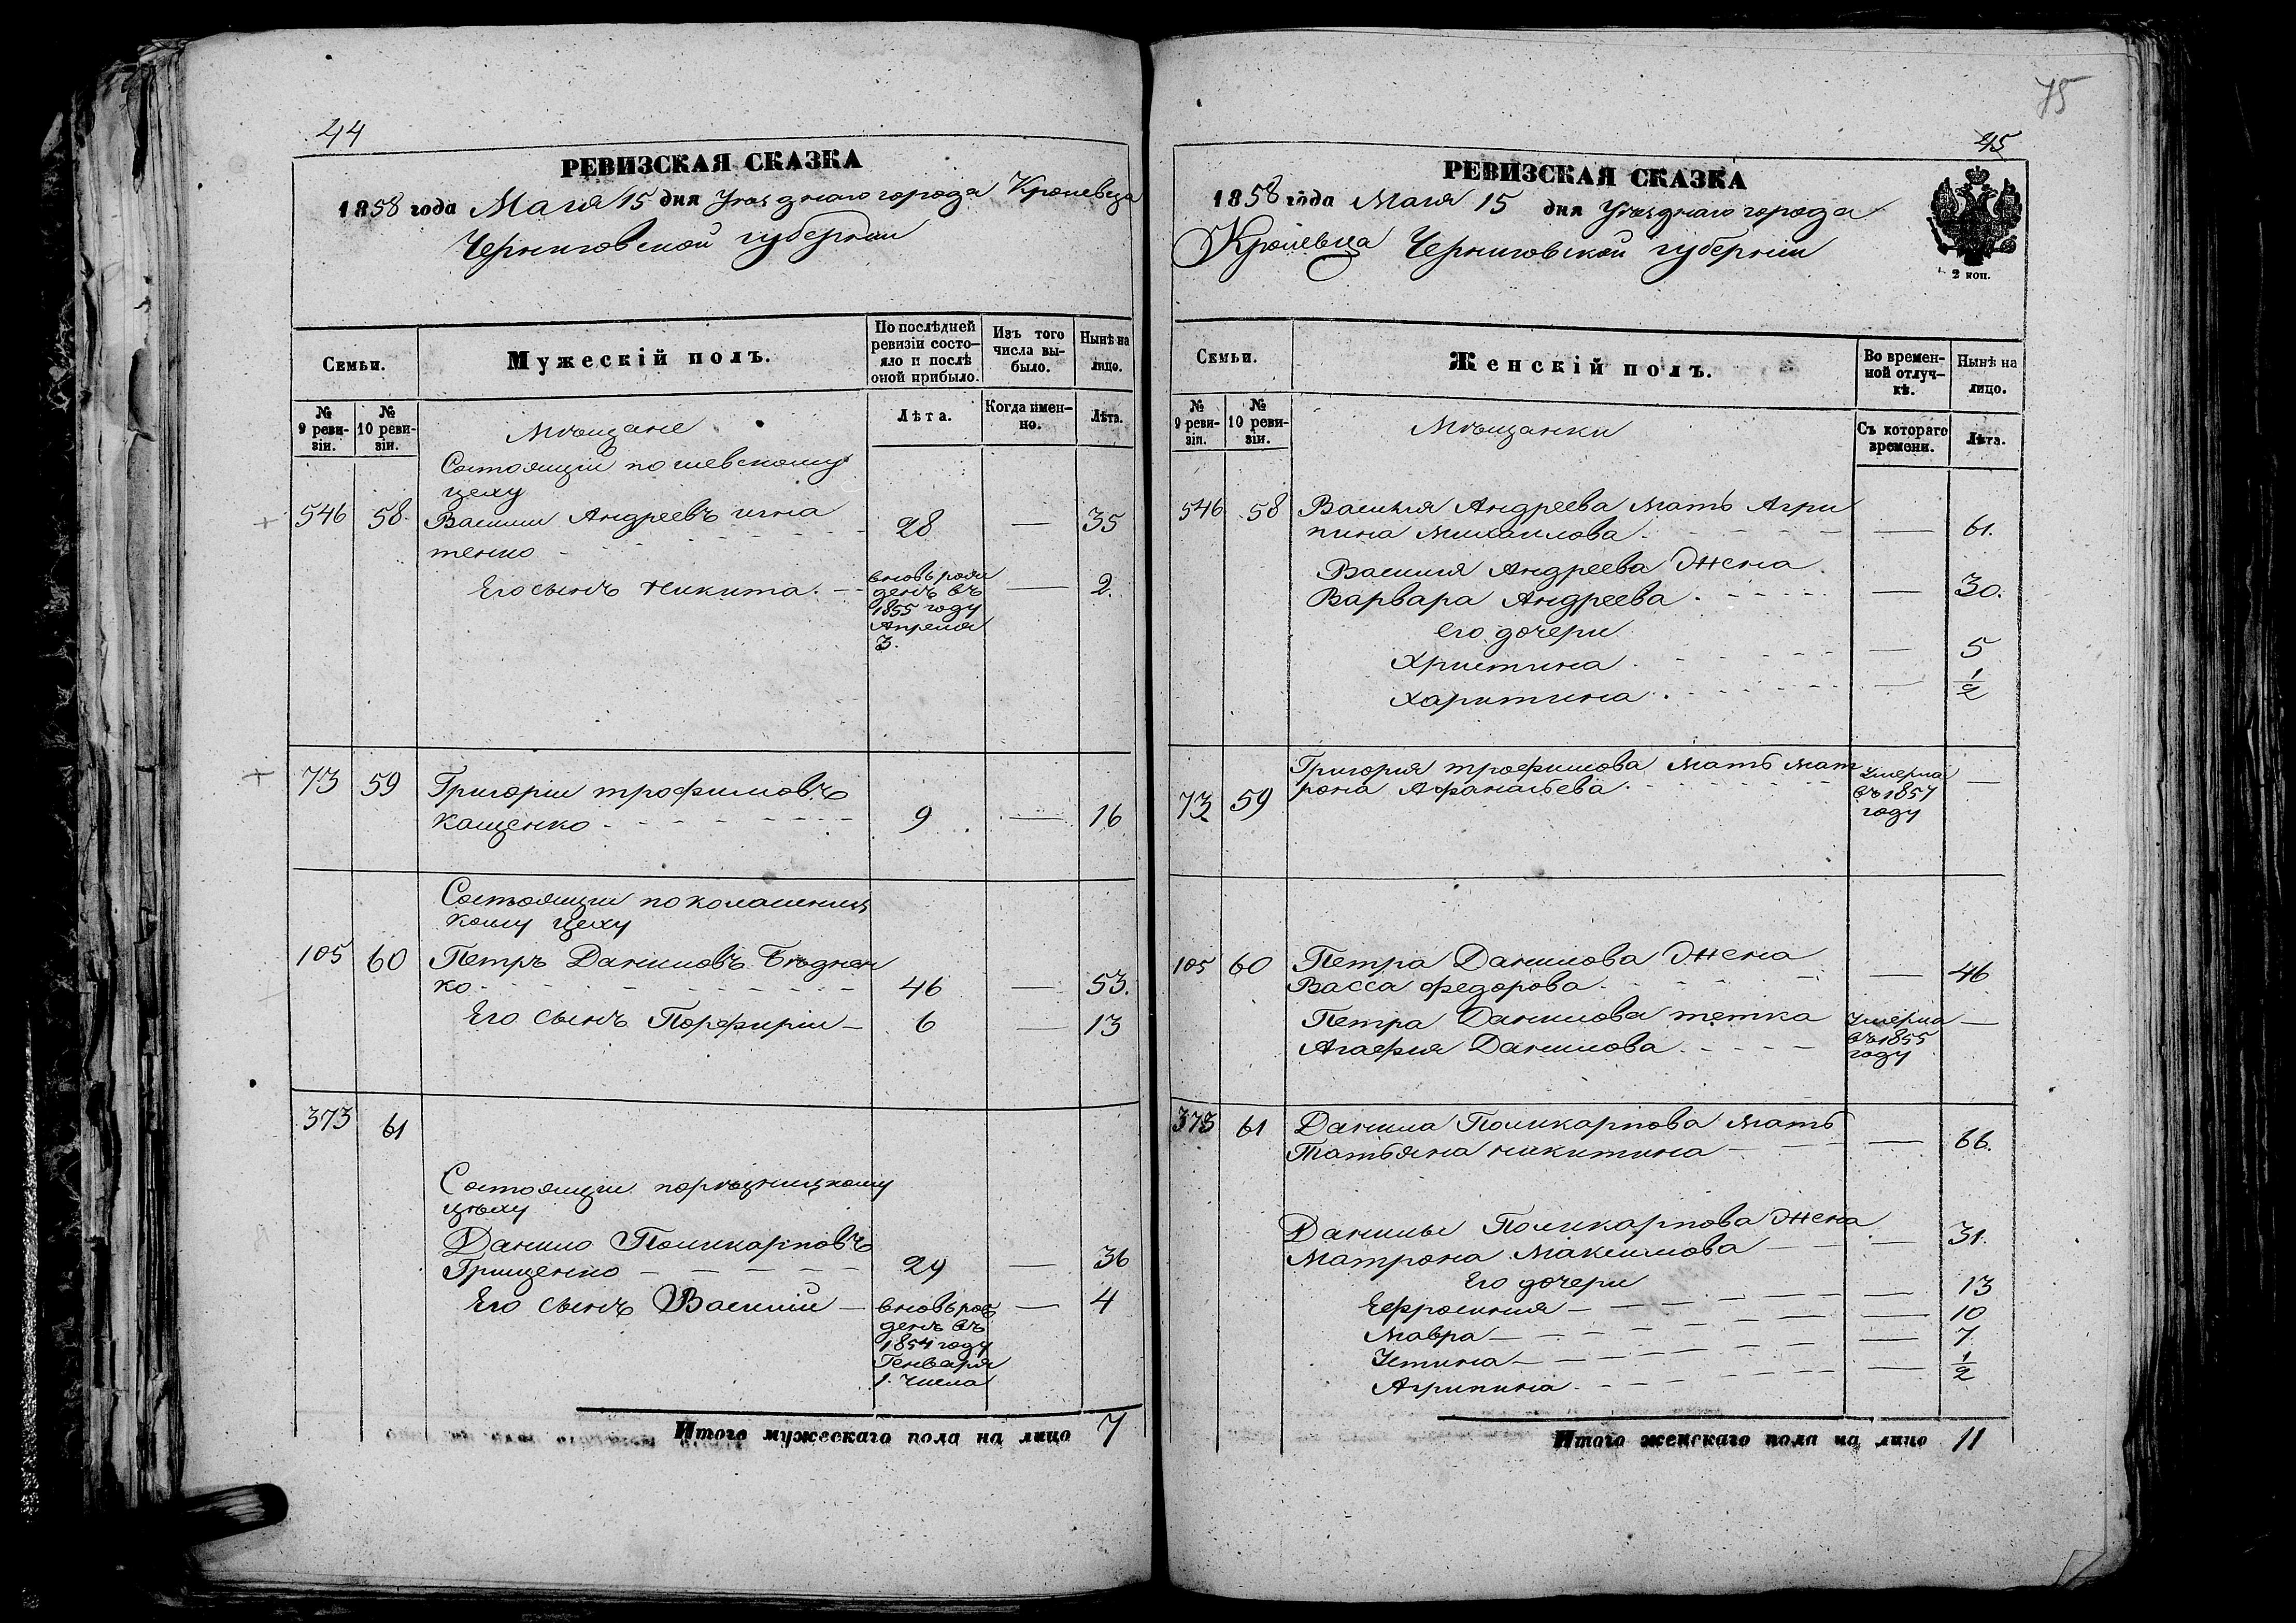 44
РЕВИЗСКАЯ СКАЗКА
1858 года Маія 15 дня Уѣзднаго города Кролевца
Черниговской губерніи
Семьи.
Мужескій полъ.
По послѣдней ревизіи состо-
яло и послѣ
оной прибыло.
Изъ того
числа вы-
было.
Нынѣ на
лицо.
№
9 реви-
зіи.
№
10 реви-
зіи.
Мѣщане
Лѣта.
Когда имен-
но.
Лѣта.
Состоящіи по шевскому
цеху
546 58. Василій Андреевъ Игна
тенко 28 — 35
Его сынъ Никита. вновь рож
денъ въ
1855 году
Апреля
3. — 2.
73 59 Григорій Трофимовъ
Кащенко 9 — 16
Состоящіи по колашниц
кому цеху
105 60 Петръ Даниловъ Бѣднен
ко 46 — 53.
Его сынъ Порфирій 6 — 13
373 61
Состоящіи
цѣху
Данило Поликарповъ
Грищенко 29 — 36
Его сынъ Василій вновь рож
денъ въ
1854 году
Генваря
1. числа — 4
Итого мужескаго пола на лицо 7
75
45
РЕВИЗСКАЯ СКАЗКА
1858 года Маія 15 дня Уѣзднаго города
Кролевца Черниговской губерніи
2 коп.
Семьи.
Женскій полъ.
Во времен-
ной отлуч-
кѣ.
Нынѣ на
лицо.
№
9 реви-
зіи.
№
10 реви-
зіи.
Мѣщанки
Съ котораго
времени.
Лѣта.
546 58 Василія Андреева мать Агри
пина Михайлова — 61.
Василія Андреева жена
Варвара Андреева — 30.
Его дочери
Христина — 5
Харитина — 1/2
73 59 Григорія Трофимова мать Мат
рона Афанасьева. Умерла
въ 1857
году —
105 60 Петра Данилова жена
Васса Федорова. — 46
Петра Данилова тетка
Агафія Данилова Умерла
въ 1855
году —
373 61 Данила Поликарпова мать
Татьяна Никитина — 66.
Данилы Поликарпова жена
Матрона Максимова — 31.
Его дочери
Ефросинія — 13
Мавра — 10
Устина — 7
Агрипина — 1/2
Итого женскаго пола на лицо 11